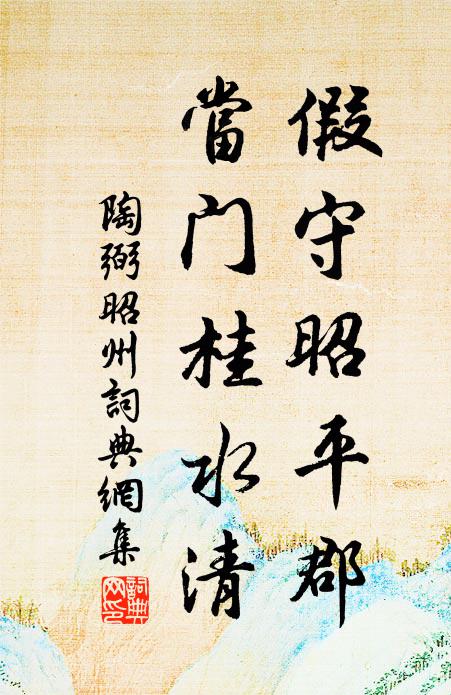 假守昭平郡
當门桂水清
陶弼昭州詞典網集
詞典